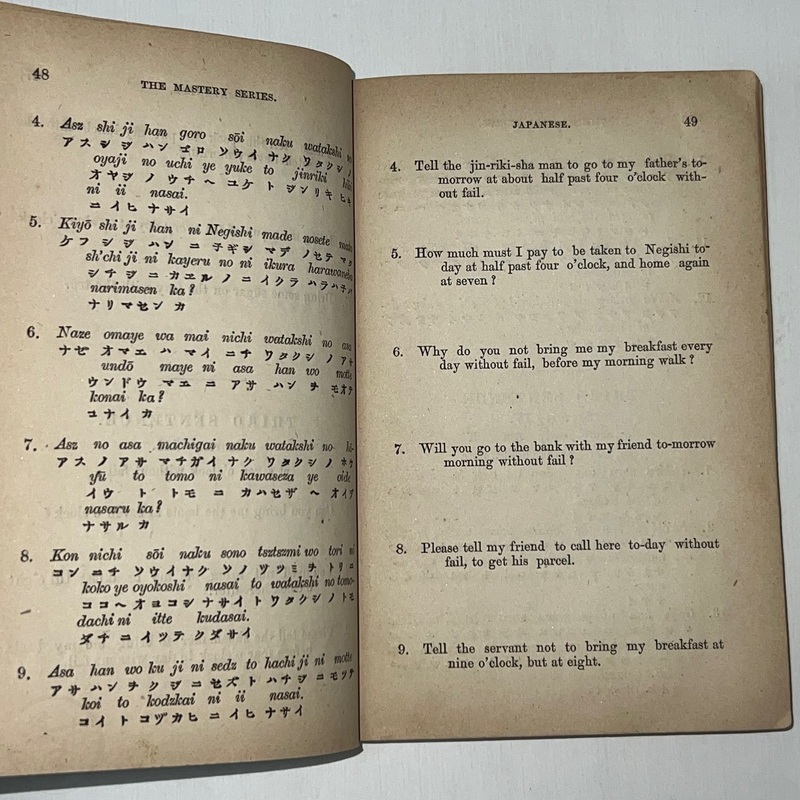 48
THE MASTERY SERIES.
4. Asz shi ji han goro sōi naku watakshi no
アス シ ヂ ハン ゴロ ソウイ ナク ワタクシ ノ
oyaji no uchi ye yuke to jinriki
オヤヂ ノ ウチ ヘ ユケ ト ヂンリキ ヒキ
ni ii nasai.
ニ イヒ ナサイ
5. Kiyō shi ji han ni Negishi made nosete
ケフ シ ヂ ハン ニ 子ギシ マデ ノセテ マタ
sh'chi ji ni kayeru no ni ikura harawaneba
シチ ヂ ニ カエル ノ ニ イクラ ハラハ子バ
narimasen ka?
ナリマセン カ
6. Naze omaye wa mai nichi watakshi no asa
ナゼ オマエ ハ マイ ニチ ワタクシ ノ アサ
undō maye ni asa han wo motte
ウンドウ マエ ニ アサ ハン ヲ モオテ
konai ka?
コナイ カ
7. Asz no asa machigai naku watakshi no hō-
アス ノ アサ マチガイ ナク ワタクシ ノ ホウ
yū to tomo ni kawaseza ye oide
イウ ト トモ ニ カハセザ ヘ オイデ
nasaru ka?
ナサル カ
8. Kon nichi sōi naku sono tsztszmi wo tori ni
コン ニチ ソウイナク ソノ ツツミ ヲ トリ ニ
koko ye oyokoshi nasai to watakshi no tomo-
ココヘ オヨコシ ナサイ ト ワタクシ ノ トモ
dachi ni itte kudasai.
ダチ ニ イツテ クダサイ
9. Asa han wo ku ji ni sedz to hachi ji ni motte
アサ ハン ヲ ク ヂ ニ セズ ト ハチ ヂ ニ モツテ
koi to kodzkai ni ii nasai.
コイ ト コヅカヒ ニ イヒ ナサイ
JAPANESE.
49
4. Tell the jin-riki-sha man to go to my father's to-
morrow at about half past four o'clock with-
out fail.
5. How much must I pay to be taken to Negishi to-
day at half past four o'clock, and home again
at seven?
6. Why do you not bring me my breakfast every
day without fail, before my morning walk?
7. Will you go to the bank with my friend to-morrow
morning without fail?
8. Please tell my friend to call here to-day without
fail, to get his parcel.
9. Tell the servant not to bring my breakfast at
nine o'clock, but at eight.